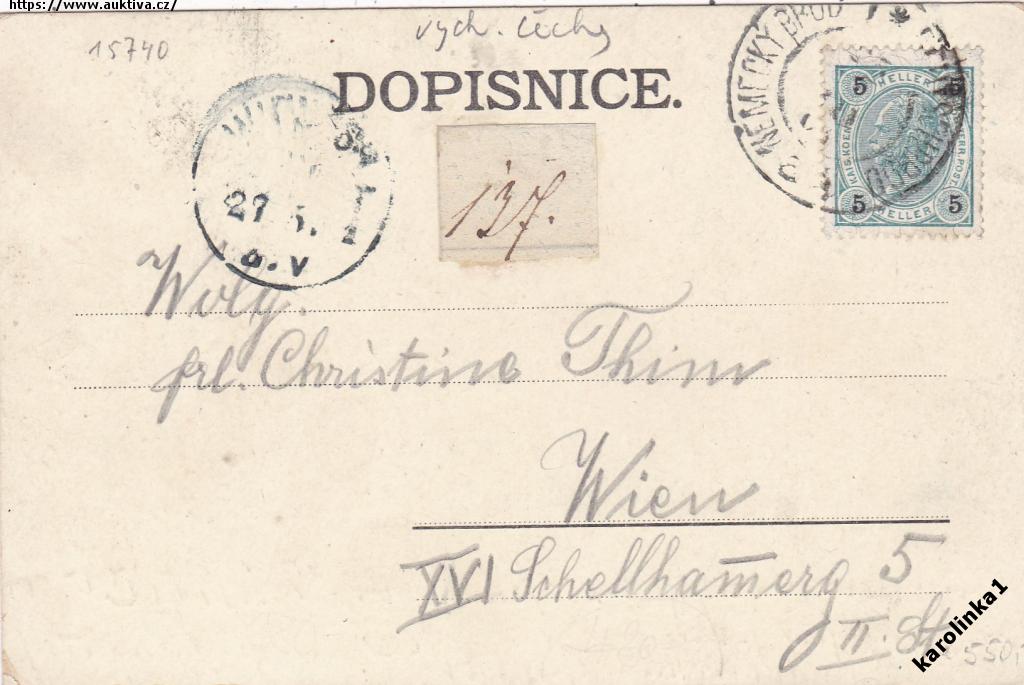 https://www.auktiva.cz/
vých. Čechy
15740
DOPISNICE.
NĚMECKÝ BROD
5 HELLER 5
KAIS. KOEN.
5 HELLER 5
WIEN
27 5.
137.
Wolg.
frl. Christine Thim
Wien
XVI Schellham̄erg 5
II. St.
550,-
karolinka1